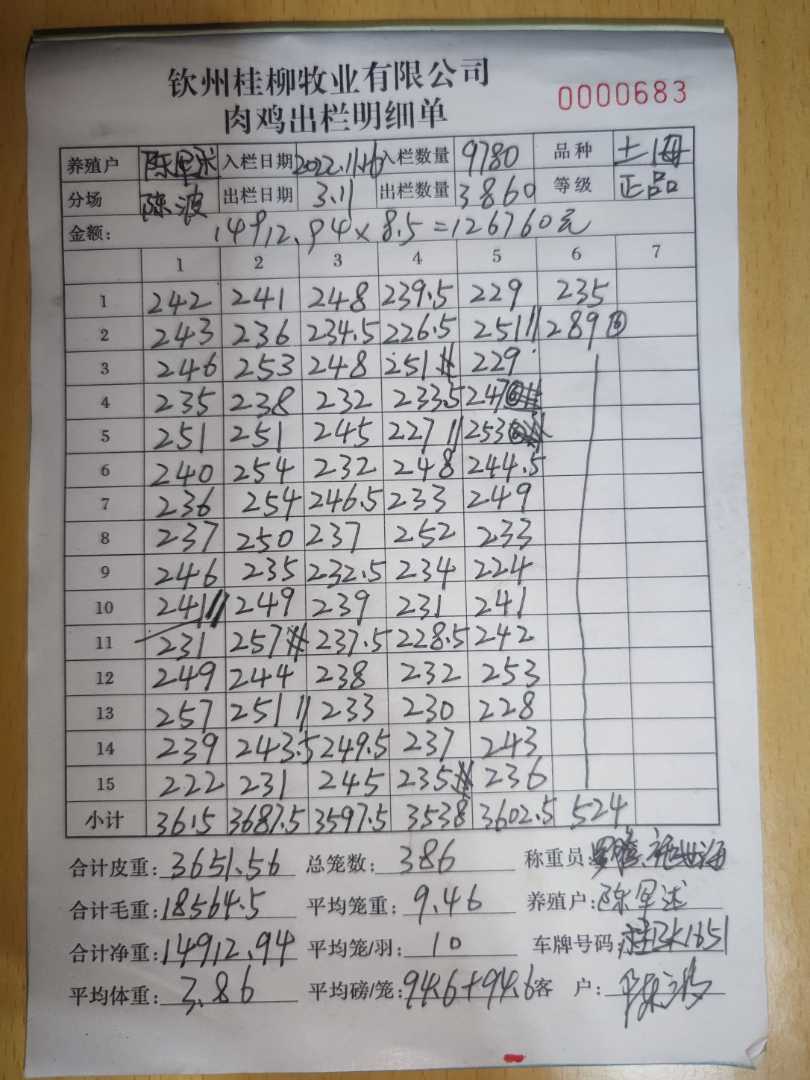 钦州桂柳牧业有限公司
肉鸡出栏明细单 0000683
养殖户 陈军述 入栏日期 2022.11.16 入栏数量 9780 品种 土海
分场 陈波 出栏日期 3.11 出栏数量 3860 等级 正品
金额: 14912.94×8.5=126760元
1 2 3 4 5 6 7
1 242 241 248 239.5 229 235
2 243 236 234.5 226.5 251 289 ⑥
3 246 253 248 251 229
4 235 238 232 233.5 247
5 251 251 245 227 253
6 240 254 232 248 244.5
7 236 254 246.5 233 249
8 237 250 237 252 233
9 246 235 232.5 234 224
10 241 249 239 231 241
11 231 257 237.5 228.5 242
12 249 244 238 232 253
13 257 251 233 230 228
14 239 243.5 249.5 237 243
15 222 231 245 235 236
小计 3615 3687.5 3597.5 3538 3602.5 524
合计皮重: 3651.56 总笼数: 386 称重员:
合计毛重: 18564.5 平均笼重: 9.46 养殖户: 陈军述
合计净重: 14912.94 平均笼/羽: 10 车牌号码:
平均体重: 3.86 平均磅/笼: 94.6+94.6 客 户: 陈波